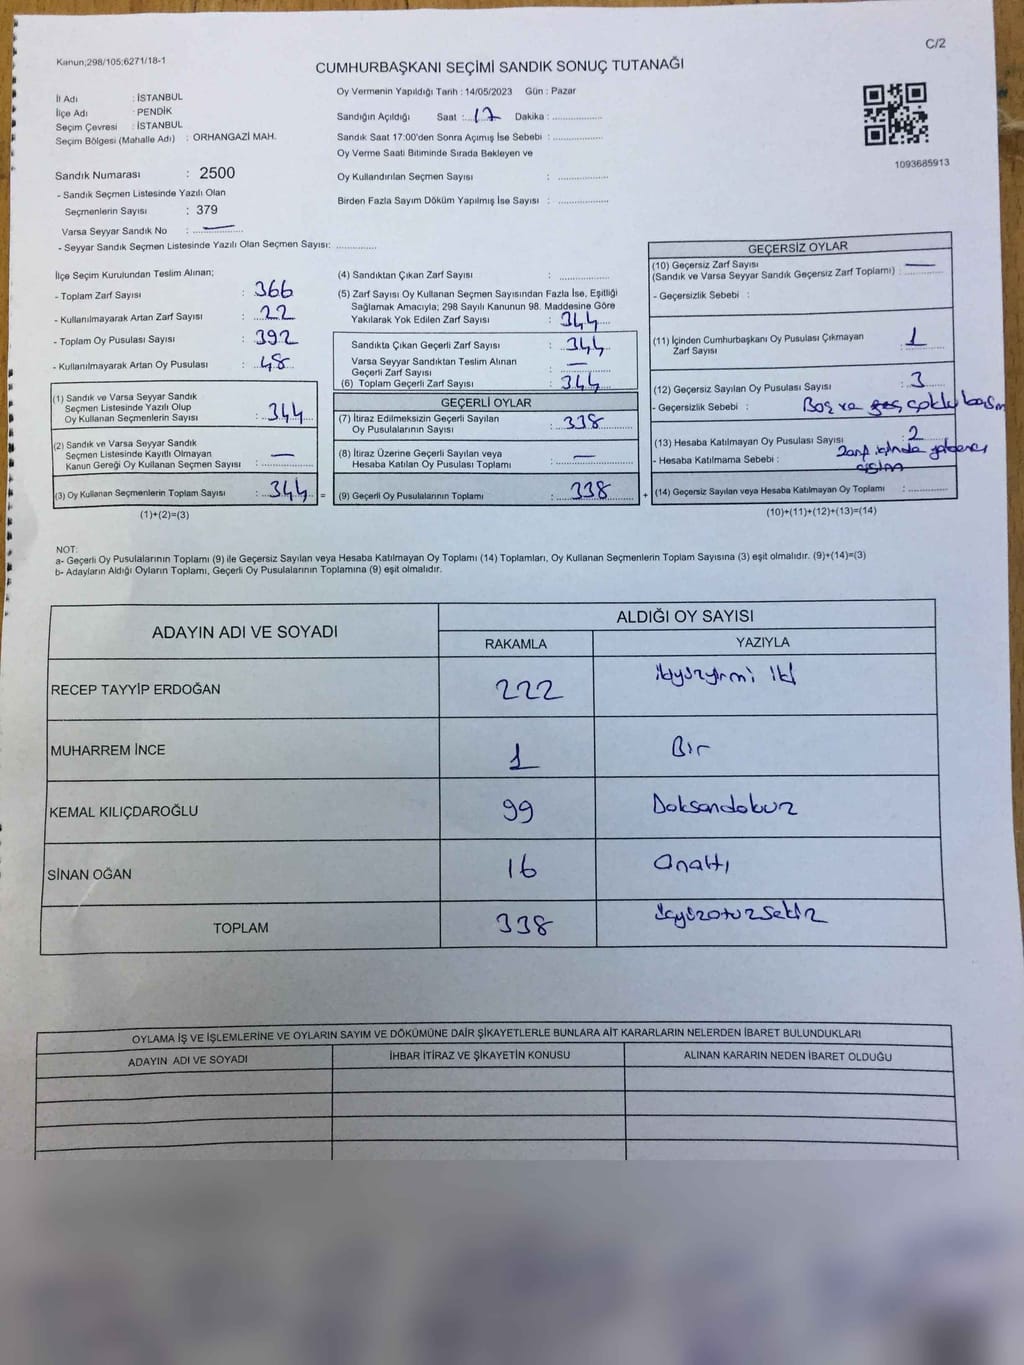 C/2
Kanun;298/105;6271/18-1
CUMHURBAŞKANI SEÇİMİ SANDIK SONUÇ TUTANAĞI
İl Adı : İSTANBUL
İlçe Adı : PENDİK
Seçim Çevresi : İSTANBUL
Seçim Bölgesi (Mahalle Adı) : ORHANGAZİ MAH.
Sandık Numarası : 2500
- Sandık Seçmen Listesinde Yazılı Olan
Seçmenlerin Sayısı : 379
Varsa Seyyar Sandık No : —
- Seyyar Sandık Seçmen Listesinde Yazılı Olan Seçmen Sayısı: ..............
Oy Vermenin Yapıldığı Tarih : 14/05/2023 Gün : Pazar
Sandığın Açıldığı Saat : 17 Dakika : ..............
Sandık Saat 17:00'den Sonra Açımış İse Sebebi : ..............
Oy Verme Saati Bitiminde Sırada Bekleyen ve
Oy Kullandırılan Seçmen Sayısı : ..............
Birden Fazla Sayım Döküm Yapılmış İse Sayısı : ..............
1093685913
İlçe Seçim Kurulundan Teslim Alınan;
- Toplam Zarf Sayısı : 366
- Kullanılmayarak Artan Zarf Sayısı : 22
- Toplam Oy Pusulası Sayısı : 392
- Kullanılmayarak Artan Oy Pusulası : 48
(1) Sandık ve Varsa Seyyar Sandık
Seçmen Listesinde Yazılı Olup
Oy Kullanan Seçmenlerin Sayısı : 344
(2) Sandık ve Varsa Seyyar Sandık
Seçmen Listesinde Kayıtlı Olmayan
Kanun Gereği Oy Kullanan Seçmen Sayısı : —
(3) Oy Kullanan Seçmenlerin Toplam Sayısı : 344 =
(1)+(2)=(3)
(4) Sandıktan Çıkan Zarf Sayısı : ..............
(5) Zarf Sayısı Oy Kullanan Seçmen Sayısından Fazla İse, Eşitliği
Sağlamak Amacıyla; 298 Sayılı Kanunun 98. Maddesine Göre
Yakılarak Yok Edilen Zarf Sayısı : 344
Sandıkta Çıkan Geçerli Zarf Sayısı : 344
Varsa Seyyar Sandıktan Teslim Alınan
Geçerli Zarf Sayısı : —
(6) Toplam Geçerli Zarf Sayısı : 344
GEÇERLİ OYLAR
(7) İtiraz Edilmeksizin Geçerli Sayılan
Oy Pusulalarının Sayısı : 338
(8) İtiraz Üzerine Geçerli Sayılan veya
Hesaba Katılan Oy Pusulası Toplamı : —
(9) Geçerli Oy Pusulalarının Toplamı : 338 +
GEÇERSİZ OYLAR
(10) Geçersiz Zarf Sayısı
(Sandık ve Varsa Seyyar Sandık Geçersiz Zarf Toplamı) : —
- Geçersizlik Sebebi :
(11) İçinden Cumhurbaşkanı Oy Pusulası Çıkmayan
Zarf Sayısı : 1
(12) Geçersiz Sayılan Oy Pusulası Sayısı : 3
- Geçersizlik Sebebi : Boş ve çoklu basım
(13) Hesaba Katılmayan Oy Pusulası Sayısı : 2
- Hesaba Katılmama Sebebi : Zarf içinde
(14) Geçersiz Sayılan veya Hesaba Katılmayan Oy Toplamı : ..............
(10)+(11)+(12)+(13)=(14)
NOT:
a- Geçerli Oy Pusulalarının Toplamı (9) ile Geçersiz Sayılan veya Hesaba Katılmayan Oy Toplamı (14) Toplamları, Oy Kullanan Seçmenlerin Toplam Sayısına (3) eşit olmalıdır. (9)+(14)=(3)
b- Adayların Aldığı Oyların Toplamı, Geçerli Oy Pusulalarının Toplamına (9) eşit olmalıdır.
ADAYIN ADI VE SOYADI ALDIĞI OY SAYISI
RAKAMLA YAZIYLA
RECEP TAYYİP ERDOĞAN 222 ikiyüzyirmi iki
MUHARREM İNCE 1 Bir
KEMAL KILIÇDAROĞLU 99 Doksandokuz
SİNAN OĞAN 16 Onaltı
TOPLAM 338 üçyüzotuzsekiz
OYLAMA İŞ VE İŞLEMLERİNE VE OYLARIN SAYIM VE DÖKÜMÜNE DAİR ŞİKAYETLERLE BUNLARA AİT KARARLARIN NELERDEN İBARET BULUNDUKLARI
ADAYIN ADI VE SOYADI İHBAR İTİRAZ VE ŞİKAYETİN KONUSU ALINAN KARARIN NEDEN İBARET OLDUĞU